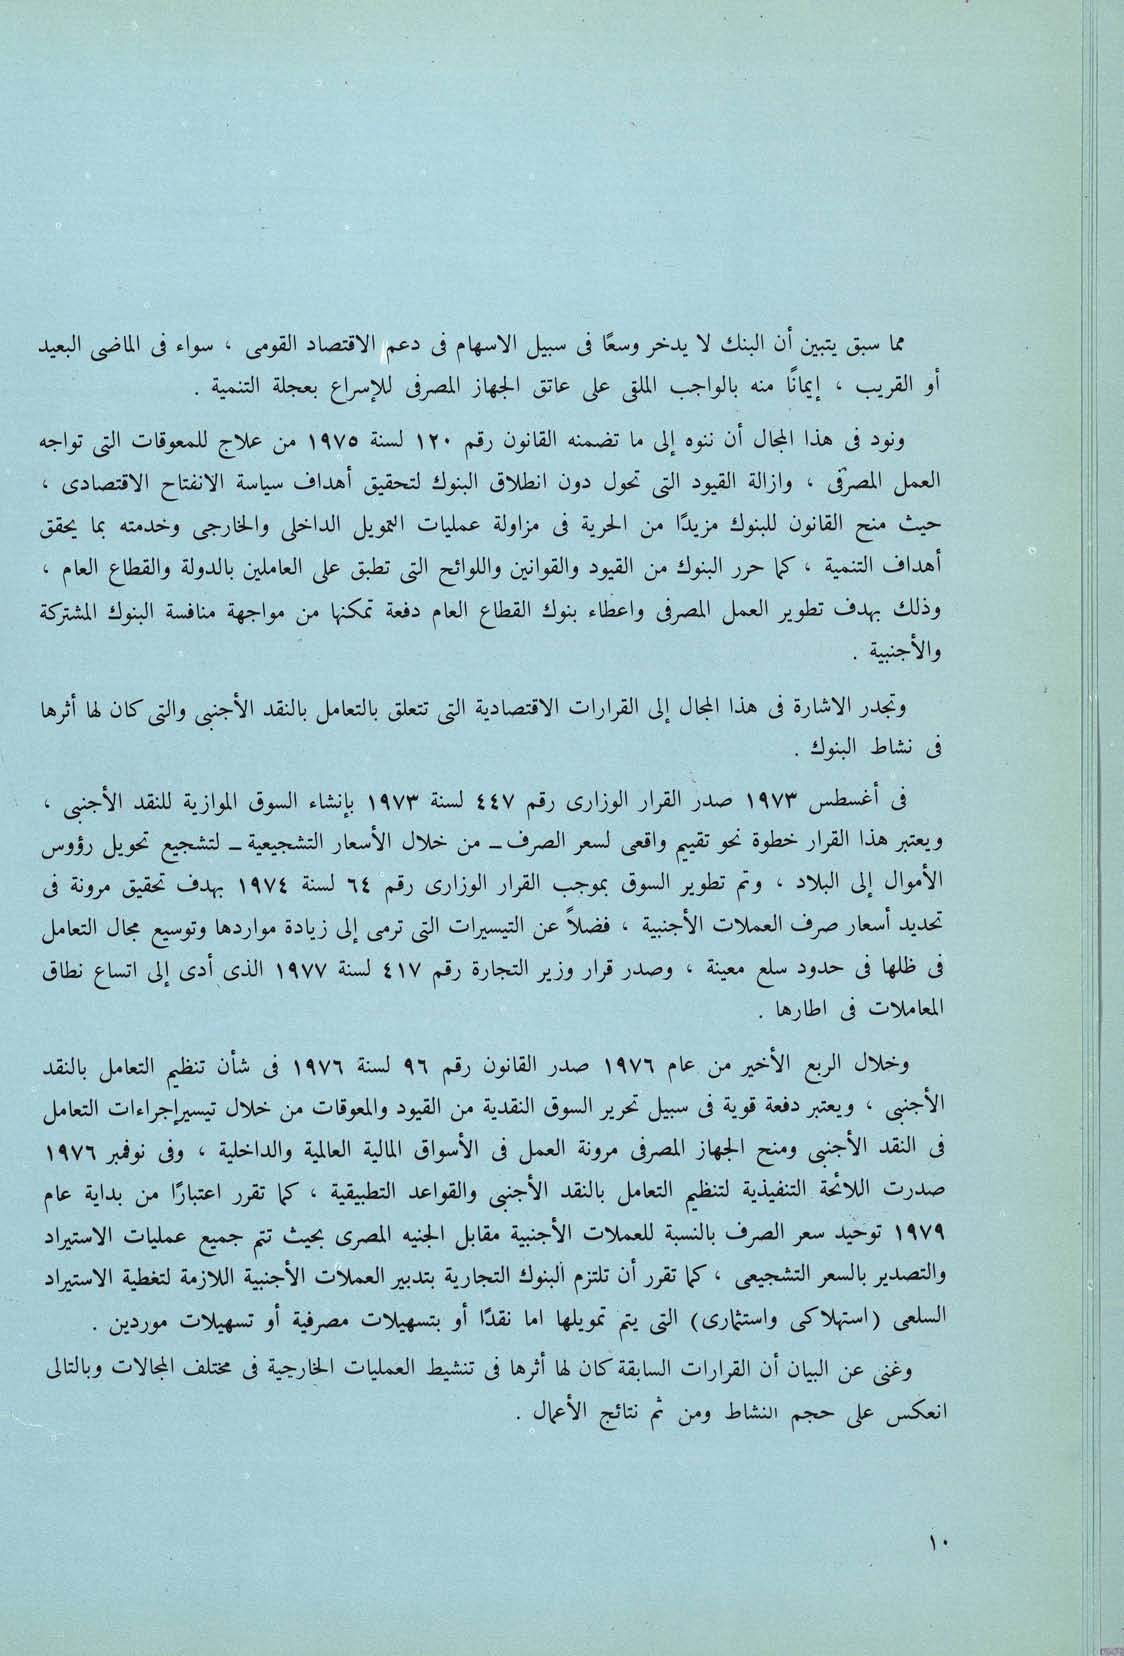 مما سبق يتبين أن البنك لا يدخر وسعًا فى سبيل الاسهام فى دعم الاقتصاد القومى ، سواء فى الماضى البعيد
أو القريب ، إيمانًا منه بالواجب الملقى على عاتق الجهاز المصرفى للإسراع بعجلة التنمية .
ونود فى هذا المجال أن ننوه إلى ما تضمنه القانون رقم ١٢٠ لسنة ١٩٧٥ من علاج للمعوقات التى تواجه
العمل المصرفى ، وازالة القيود التى تحول دون انطلاق البنوك لتحقيق أهداف سياسة الانفتاح الاقتصادى ،
حيث منح القانون للبنوك مزيدًا من الحرية فى مزاولة عمليات التمويل الداخلى والخارجى وخدمته بما يحقق
أهداف التنمية ، كما حرر البنوك من القيود والقوانين واللوائح التى تطبق على العاملين بالدولة والقطاع العام ،
وذلك بهدف تطوير العمل المصرفى واعطاء بنوك القطاع العام دفعة تمكنها من مواجهة منافسة البنوك المشتركة
والأجنبية .
وتجدر الاشارة فى هذا المجال إلى القرارات الاقتصادية التى تتعلق بالتعامل بالنقد الأجنبى والتى كان لها أثرها
فى نشاط البنوك .
فى أغسطس ١٩٧٣ صدر القرار الوزارى رقم ٤٤٧ لسنة ١٩٧٣ بإنشاء السوق الموازية للنقد الأجنبى ،
ويعتبر هذا القرار خطوة نحو تقييم واقعى لسعر الصرف – من خلال الأسعار التشجيعية – لتشجيع تحويل رؤوس
الأموال إلى البلاد ، وتم تطوير السوق بموجب القرار الوزارى رقم ٦٤ لسنة ١٩٧٤ بهدف تحقيق مرونة فى
تحديد أسعار صرف العملات الأجنبية ، فضلاً عن التيسيرات التى ترمى إلى زيادة مواردها وتوسيع مجال التعامل
فى ظلها فى حدود سلع معينة ، وصدر قرار وزير التجارة رقم ٤١٧ لسنة ١٩٧٧ الذى أدى إلى اتساع نطاق
المعاملات فى اطارها .
وخلال الربع الأخير من عام ١٩٧٦ صدر القانون رقم ٩٦ لسنة ١٩٧٦ فى شأن تنظيم التعامل بالنقد
الأجنبى ، ويعتبر دفعة قوية فى سبيل تحرير السوق النقدية من القيود والمعوقات من خلال تيسير إجراءات التعامل
فى النقد الأجنبى ومنح الجهاز المصرفى مرونة العمل فى الأسواق المالية العالمية والداخلية ، وفى نوفمبر ١٩٧٦
صدرت اللائحة التنفيذية لتنظيم التعامل بالنقد الأجنبى والقواعد التطبيقية ، كما تقرر اعتبارًا من بداية عام
١٩٧٩ توحيد سعر الصرف بالنسبة للعملات الأجنبية مقابل الجنيه المصرى بحيث تتم جميع عمليات الاستيراد
والتصدير بالسعر التشجيعى ، كما تقرر أن تلتزم البنوك التجارية بتدبير العملات الأجنبية اللازمة لتغطية الاستيراد
السلعى (استهلاكى واستثمارى) التى يتم تمويلها اما نقدًا أو بتسهيلات مصرفية أو تسهيلات موردين .
وغنى عن البيان أن القرارات السابقة كان لها أثرها فى تنشيط العمليات الخارجية فى مختلف المجالات وبالتالى
انعكس على حجم النشاط ومن ثم نتائج الأعمال .
١٠